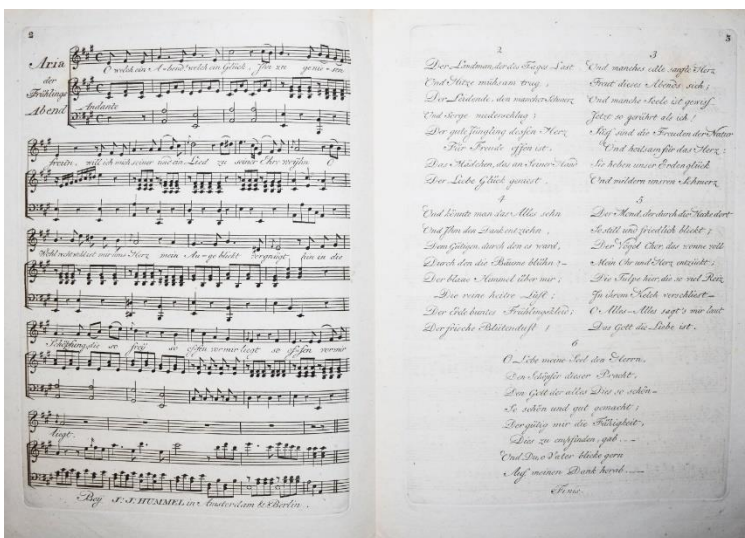 2
Aria
der
Frühlings
Abend
Andante
O welch ein Abend! welch ein Glück, frei zu genie-sen
freuen, will ich mich seiner und ein Lied zu seiner Ehr weyhn O
Wohl nicht will ist mir ums Herz mein Au-ge blickt vergnügt hin in die
Schöpfung, die so frey so offen vor mir liegt so offen vor mir
liegt.
Bey J: J: HUMMEL in Amsterdam & Berlin.
3
2
Der Landman, der des Tages Last
Und Hitze mühsam trug,
Der Leidende, den mancher Schmerz
Und Sorge niederschlug;
Der gute Jüngling dessen Herz
Für Freude offen ist.
Das Mädchen, das an Seiner Hand
Der Liebe Glück geniest.
3
Und manches edle sanfte Herz
Freut dieses Abends sich;
Und manche Seele ist gewiss
Jetzt so gerührt als ich!
Süß sind die Freuden der Natur
Und heilsam für das Herz:
Sie heben unser Erdenglück
Und mildern unsren Schmerz
4
Und könnte man das Alles sehn
Und Ihm den Dank entziehn,
Dem Gütigen, durch den es ward,
Durch den die Bäume blühn?–
Der blaue Himmel über mir;
Die reine heitre Luft;
Der Erde buntes Frühlingskleid;
Der frische Blütenduft!
5
Der Mond, der durch die Hecke dort
So still und friedlich blickt;
Der Vögel Chor, das wonne voll
Mein Ohr und Herz entzückt;
Die Tulpe hier, die so viel Reiz
In ihrem Kelch verschliest–
O Alles–Alles sagt's mir laut
Das Gott die Liebe ist.
6
O Liebe meine Seel den Herrn,
Den Schöpfer dieser Pracht,
Den Gott der alles Dies so schön–
So schön und gut gemacht;
Der gütig mir die Fähigkeit,
Dies zu empfinden, gab.–
Und Du, o Vater blicke gern
Auf meinen Dank herab.–
Finis.